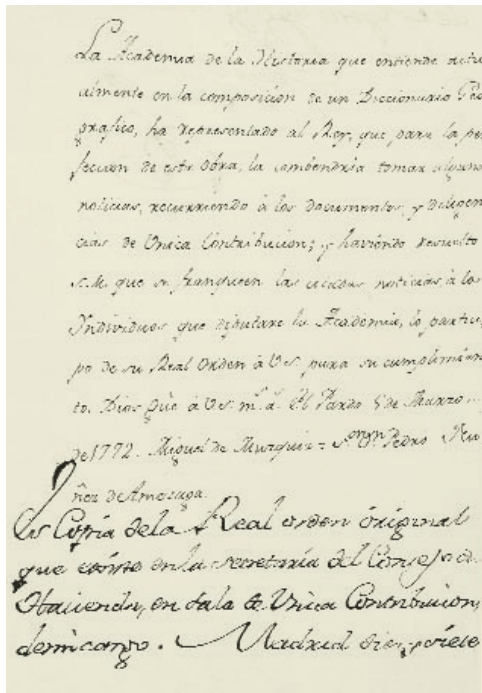 La Academia de la Historia que entiende actu
almente en la composicion de un Diccionario Geo
grafico, ha representado al Rey, que para la per
feccion de esta Obra, la combendria tomar algunas
noticias, recurriendo à los documentos, y diligen
cias de Unica Contribucion; y haviendo resuelto
S.M. que se franqueen las citadas noticias à los
Individuos que diputare la Academia, lo partici
po de su Real Orden à V.S. para su cumplimien
to. Dios gũe à V.S. m.s a.s El Pardo 5 de Marzo
de 1772. Miguel de Muzquiz = S.or D.n Pedro Nu
ñez de Amezaga.
Es Copia de la Real orden original
que existe en la secretaría del Consejo de
Hacienda, en sala de Unica Contribucion,
de mi cargo. Madrid diez y siete